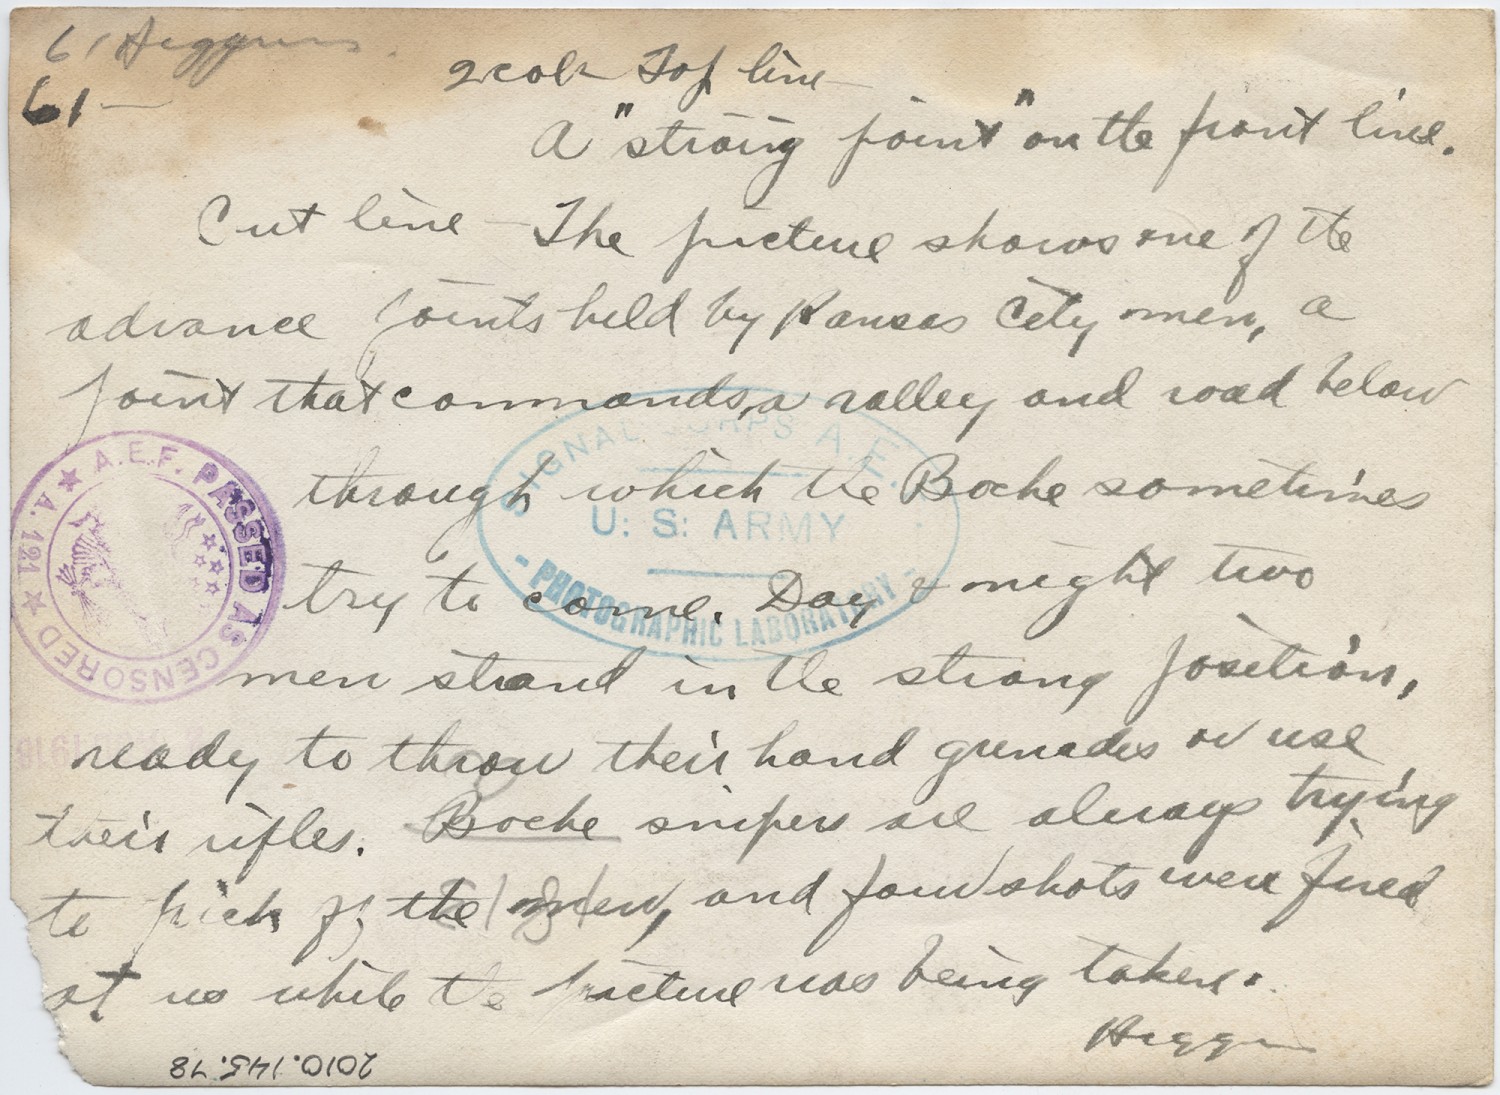 61 Higgins.
61—
2 col— Top line—
A "strong point" on the front line.
Cut line — The picture shows one of the
advance points held by Kansas City men, a
point that commands a valley and road below
through which the Boche sometimes
try to come. Day & night two
men stand in the strong position,
ready to throw their hand grenades or use
their rifles. Boche snipers are always trying
to pick off the men, and four shots were fired
at us while the picture was being taken.
Higgins
SIGNAL CORPS A.E.F.
U. S. ARMY
- PHOTOGRAPHIC LABORATORY -
A.E.F. PASSED AS CENSORED
A. 121
1918
2010.145.78